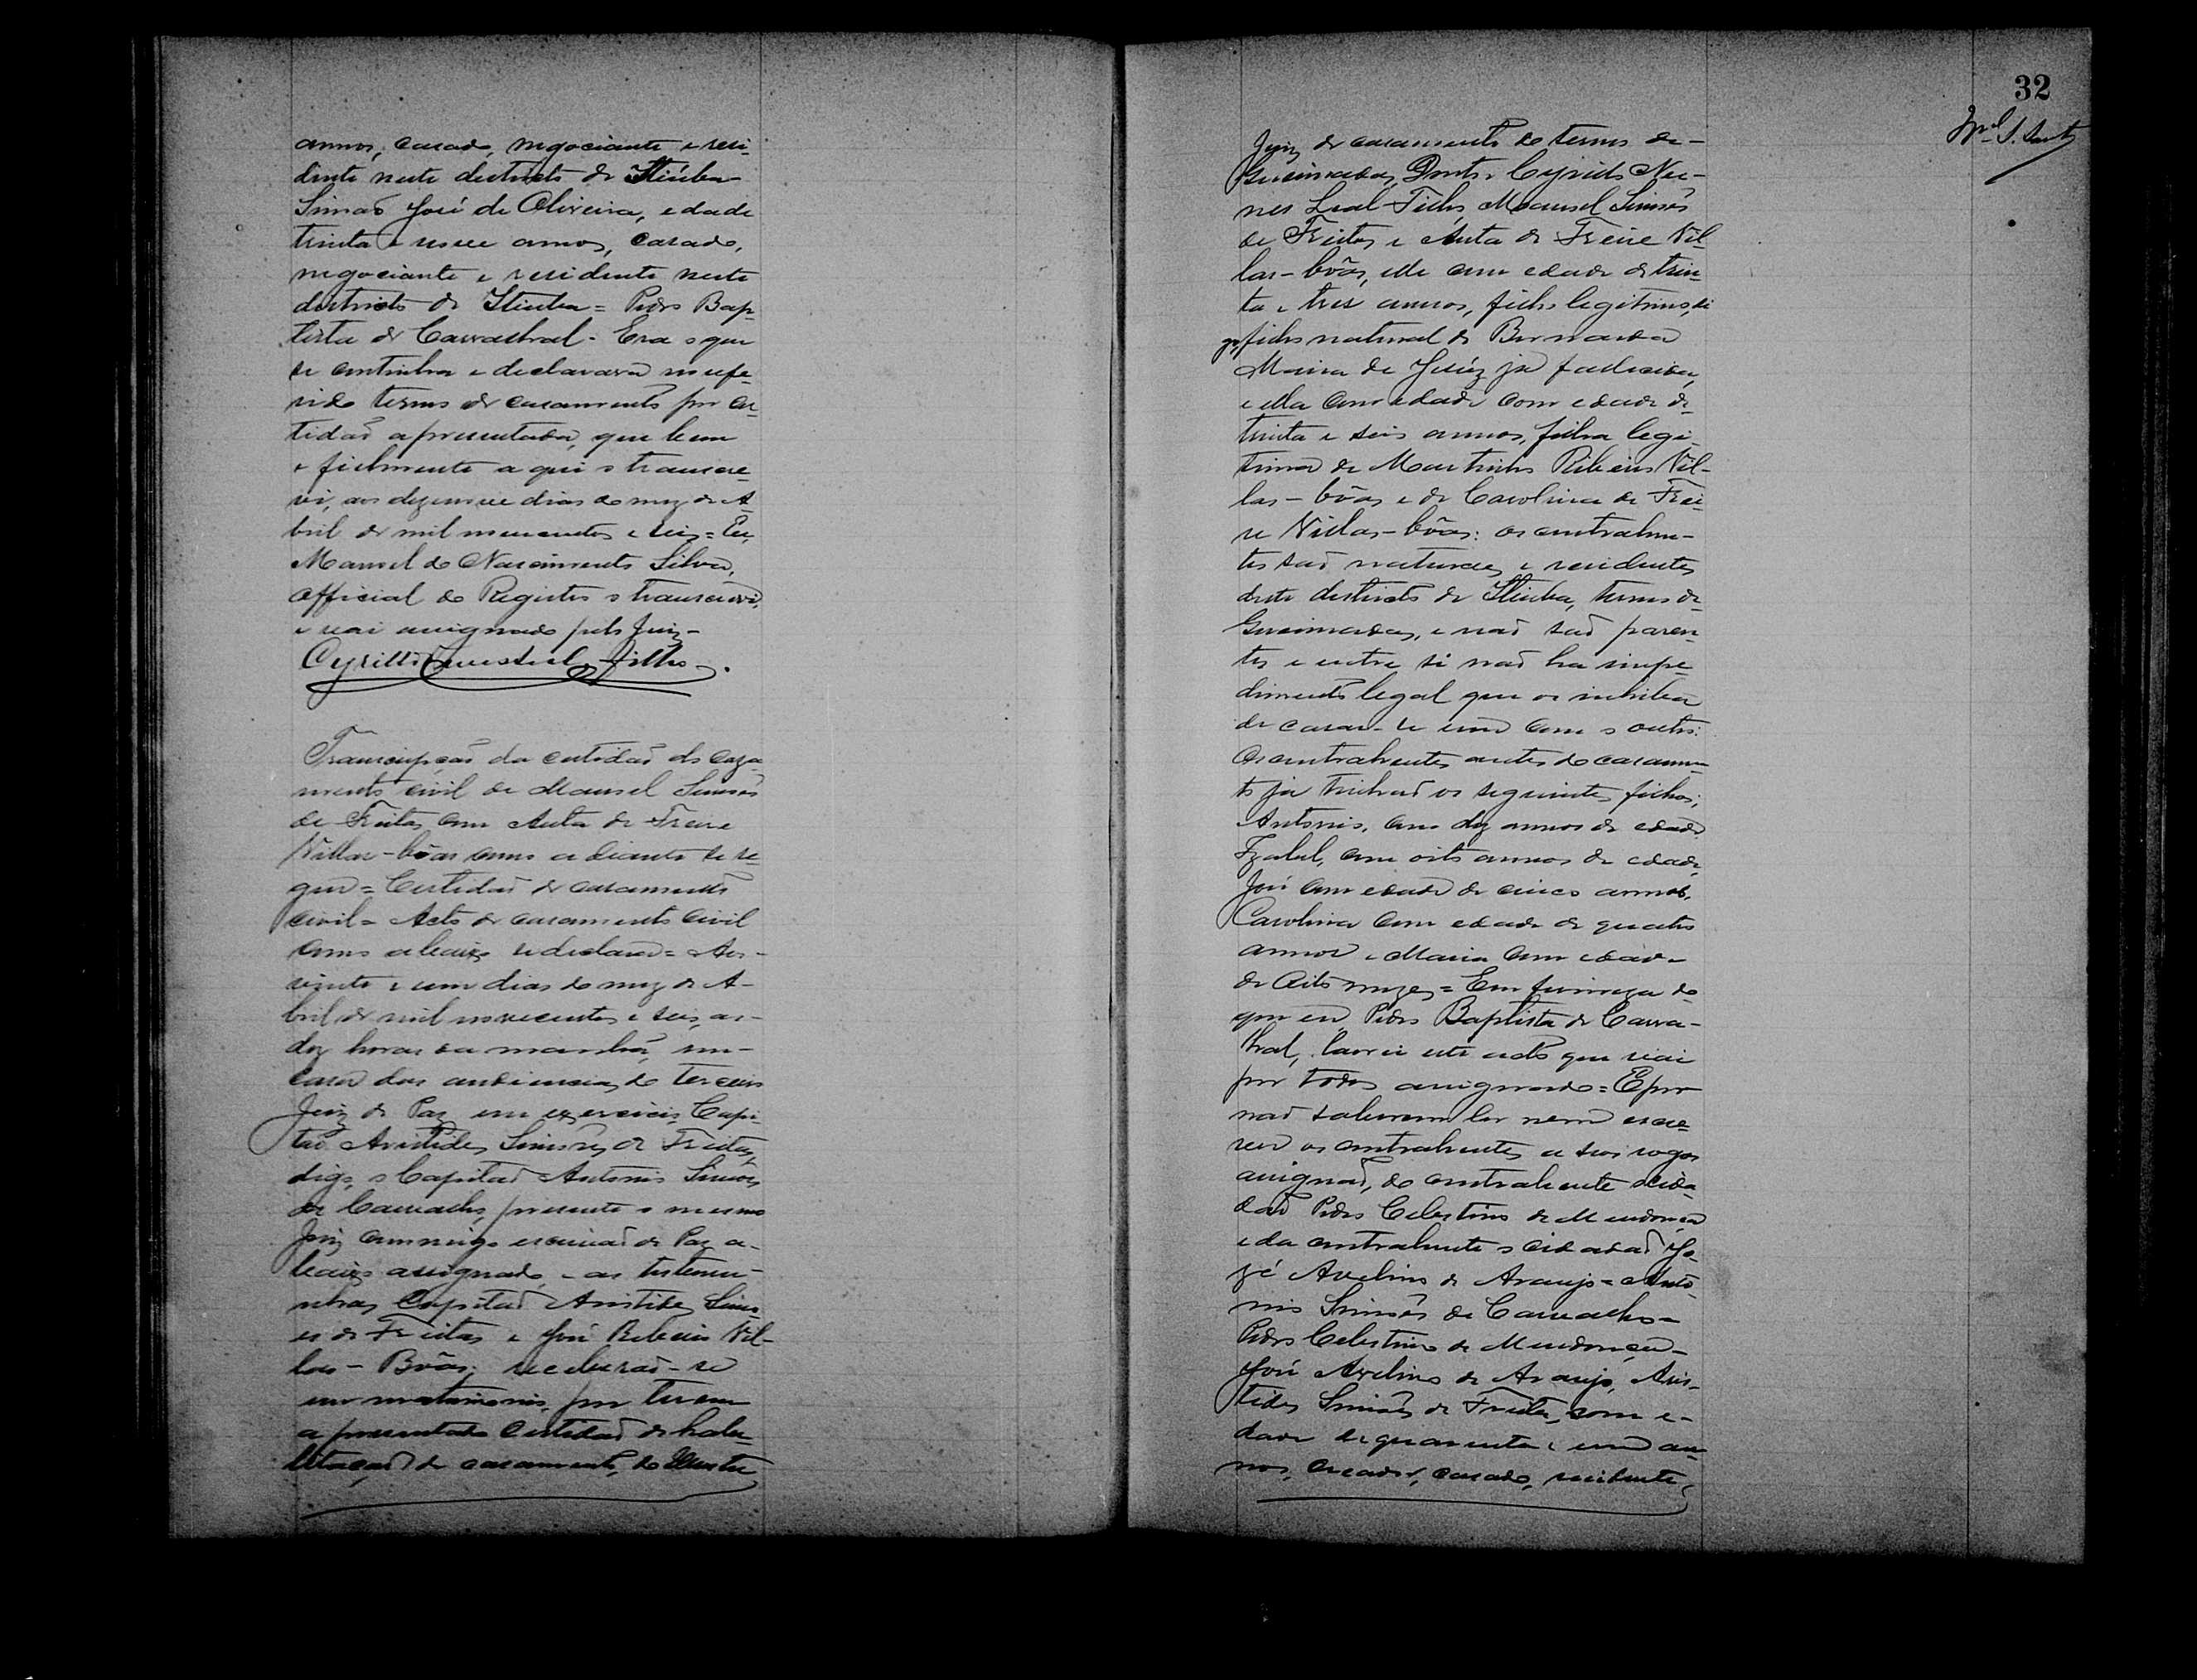 annos, casado, negociante e resi-
dente neste districto de Itiúba
Simaõ José de Oliveira, edade
trinta e nove annos, casado,
negociante e residente neste
districto de Itiuba = Pedro Bap-
tista de Carvalhal. Era o que
se continha e declarava no refe-
rido termo de casamento por cer-
tidaõ apresentada, que bem
e fielmente aqui o transcre-
vi, aos dezenove dias do mez de A-
bril de mil novecentos e seis = Eu,
Manoel do Nascimento Silva,
official do Registro o transcrevi,
e vai assignado pelo Juiz -
Cyrillo Filho.
Transcripçaõ da certidaõ do caza-
mento civil de Manoel Simões
de Freitas com Auta de Freire
Villas-bôas como adiante se se-
gue = Certidaõ de casamento
civil = Acto de casamento civil
como abaixo se declara = Aos
vinte e um dias do mez de A-
bril de mil novecentos e seis, as
dez horas da manhã, em
casa das audiencias do terceiro
Juiz de Paz em exercicio, Capi-
taõ Aristides Simões de Freitas,
digo, o Capitaõ Antonio Simões
de Carvalho, presente o mesmo
Juiz commigo escrivaõ de Paz a-
baixo assignado, e as testemu-
nhas, Capitaõ Aristides Simo-
es de Freitas e José Ribeiro Vil-
las-Bôas; receberaõ-se
em matrimonio, por terem
apresentado certidaõ de habi-
litaçaõ de casamento, do
32
Juiz de casamento do termo de
Queimadas, Doutor Cyrillo Nu-
nes Leal Filho, Manoel Simões
de Freitas e Auta de Freire Vil-
las-bôas, elle com edade de trin-
ta e tres annos, filho legitimo, di
go, filho natural de Bernarda
Maria de Jesúz já fallecida,
e ella com edade com edade de
trinta e seis annos, filha legi-
tima de Martinho Ribeiro Vil-
las-bôas e de Carolina de Frei-
re Villas-bôas: os contrahen-
tes saõ naturaes e residentes
deste districto de Itiuba, termo de
Queimadas, e naõ saõ paren-
tes e entre si naõ ha impe-
dimento legal que os inhiba
de casar-se um com o outro.
Os contrahentes antes do casamen-
to já tinhaõ os seguintes filhos;
Antonio, com dez annos de edade
Izabel, com oito annos de edade,
José com edade de cinco annos,
Carolina com edade de quatro
annos e Maria com edade
de oito mezes = Em firmeza do
que eu, Pedro Baptista de Carva-
lhal, lavrei este acto que vai
por todos assignado = E por
naõ saberem ler nem escre-
ver os contrahentes a seos rogos
assignaõ, do contrahente o cida-
daõ Pedro Celestino de Mendonça
e da contrahente o cidadaõ Jo-
zé Avelino de Araujo = Anto-
nio Simões de Carvalho =
Pedro Celestino de Mendonça =
José Avelino de Araujo, Aris-
tides Simões de Freitas, com e-
dade de quarenta e um an-
nos, creador, casado, residente,